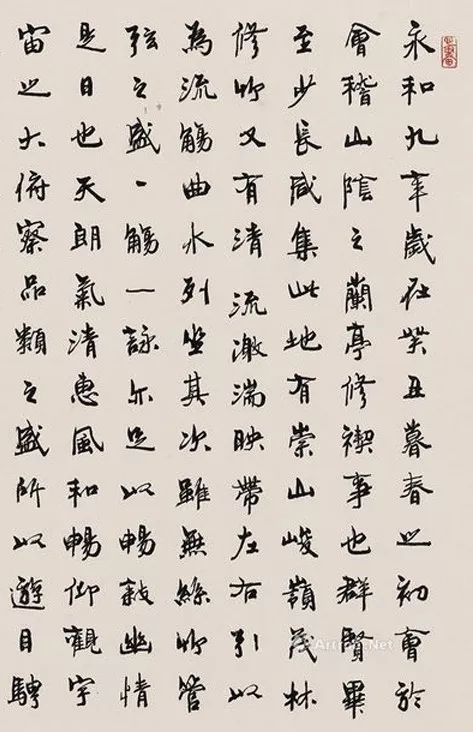 永和九年歲在癸丑暮春之初會於
會稽山陰之蘭亭修禊事也群賢畢
至少長咸集此地有崇山峻嶺茂林
修竹又有清流激湍映帶左右引以
為流觴曲水列坐其次雖無絲竹管
弦之盛一觴一詠亦足以暢敘幽情
是日也天朗氣清惠風和暢仰觀宇
宙之大俯察品類之盛所以遊目騁